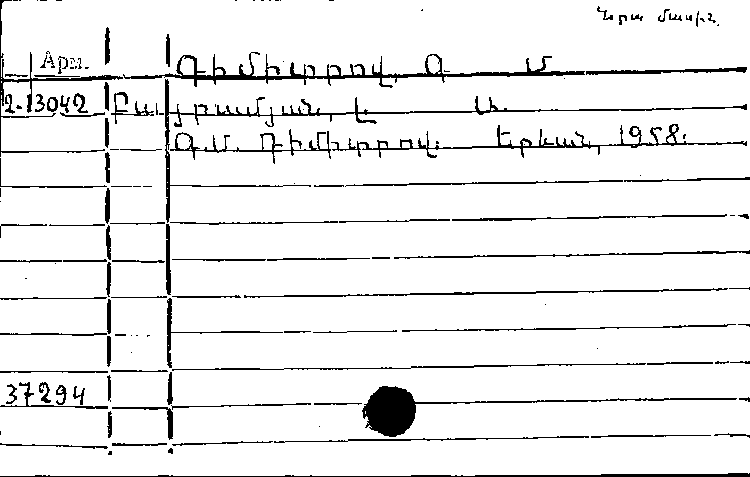 Նրա մասին
Арм. Դիմիտրով, Գ Մ
2-13042 Բայրամյան, Է Ա.
Գ.Մ. Դիմիտրով. Երևան, 1958.
37294